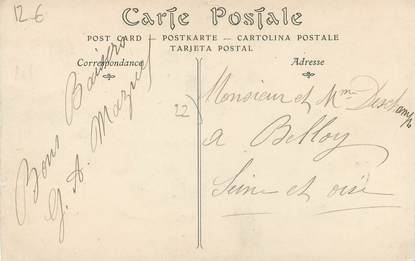 12-6
Carte Postale
POST CARD — POSTKARTE — CARTOLINA POSTALE
TARJETA POSTAL
Correspondance
Adresse
Bons Baisers
G. A.
22
Monsieur et Mme Deschamps
a Belloy
Seine et oise